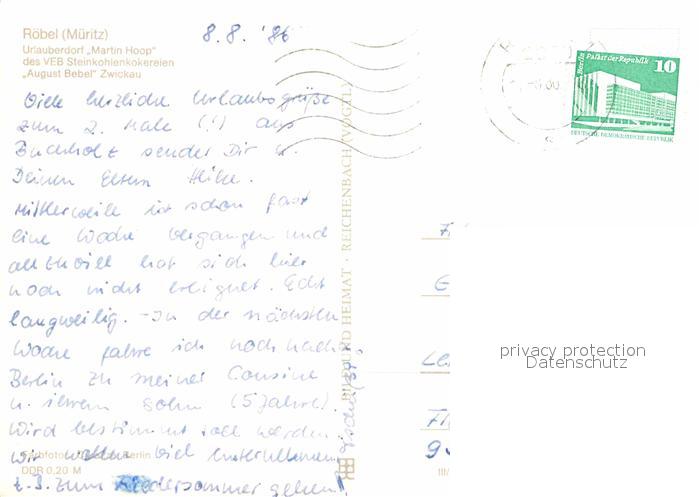 Röbel (Müritz)
Urlauberdorf „Martin Hoop"
des VEB Steinkohlenkokereien
„August Bebel" Zwickau
8.8. '86
Viele herzliche Urlaubsgrüße
zum 2. Male (!) aus
Buchholz sendet Dir u.
Deinen Eltern Heike.
Mittlerweile ist schon fast
eine Woche vergangen und
allzuviel hat sich hier
noch nicht ereignet. Echt
langweilig. - In der nächsten
Woche fahre ich noch nach
Berlin zu meiner Cousine
u. ihrem Sohn (5 Jahre).
Wird bestimmt toll werden.
Wir wollen viel unternehmen
z.B. zum Liedersommer gehen!
Tschüß!
Berlin
DDR 0,20 M
BILD UND HEIMAT · REICHENBACH (VOGTL)
III/
Berlin Palast der Republik 10
DEUTSCHE DEMOKRATISCHE REPUBLIK
privacy protection
Datenschutz